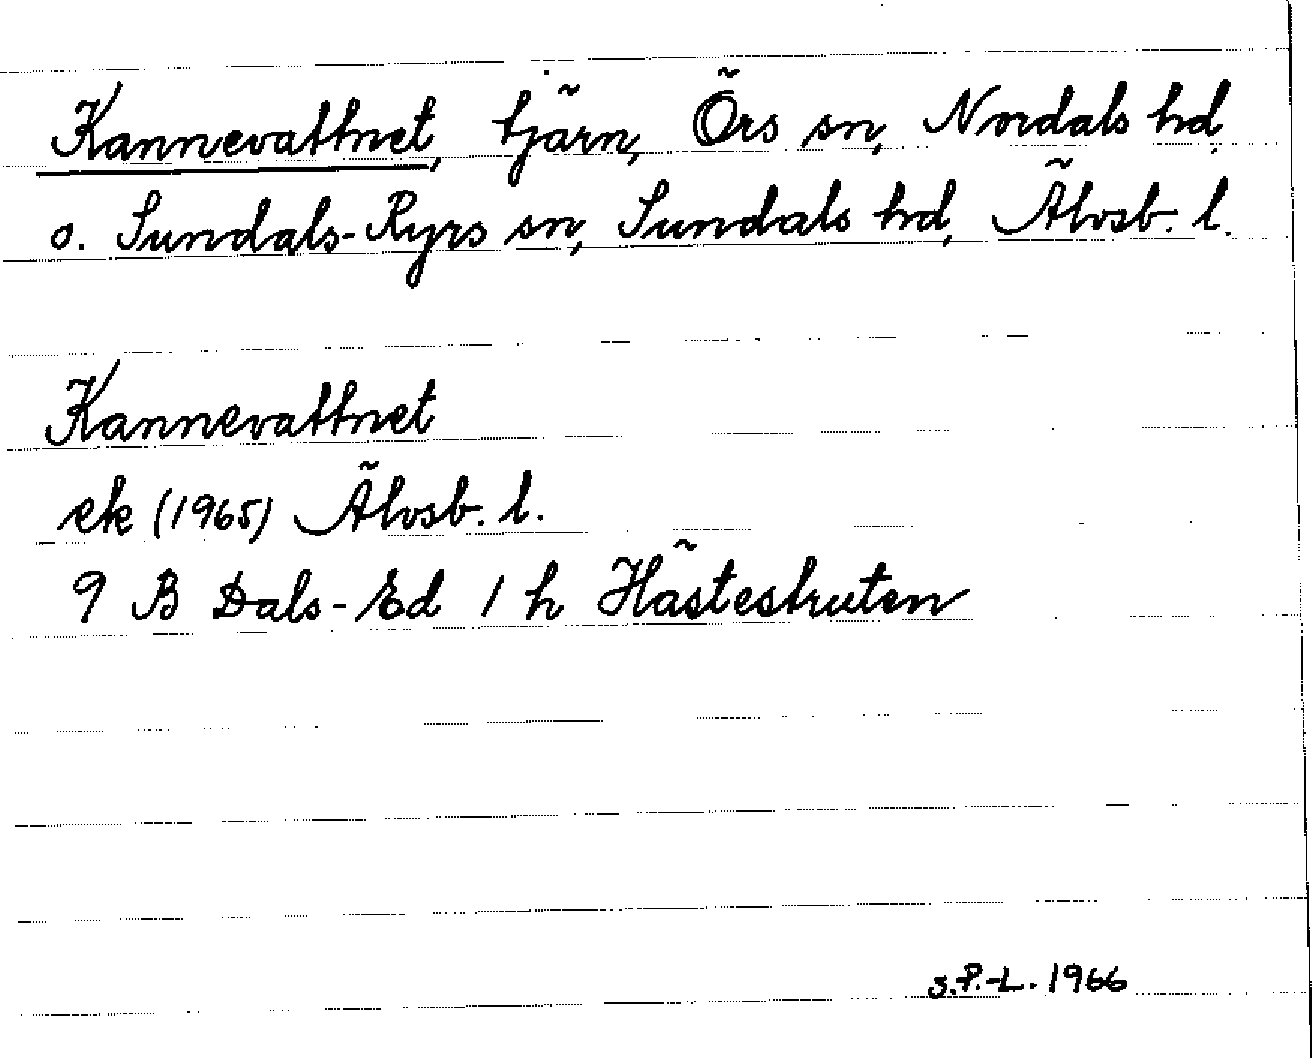 Kannevattnet, tjärn, Örs sn, Nordals hd,
o. Sundals-Ryrs sn, Sundals hd, Älvsb. l.
Kannevattnet
ek (1965) Älvsb. l.
9 B Dals-Ed 1 h Hästestruten
S.P.-L. 1966